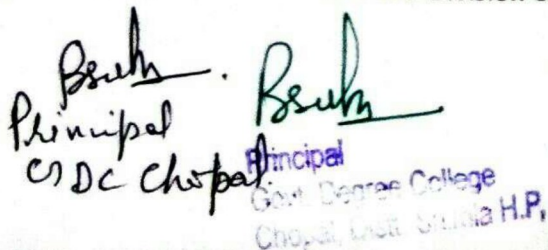 Principal
GDC Chopal
Principal
Govt. Degree College
Chopal, Distt. Shimla H.P.